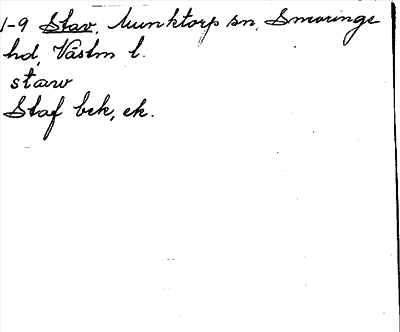 1-9 Stav, Munktorp sn, Snevringe
hd, Västm l.
staw
Staf bek, ek.